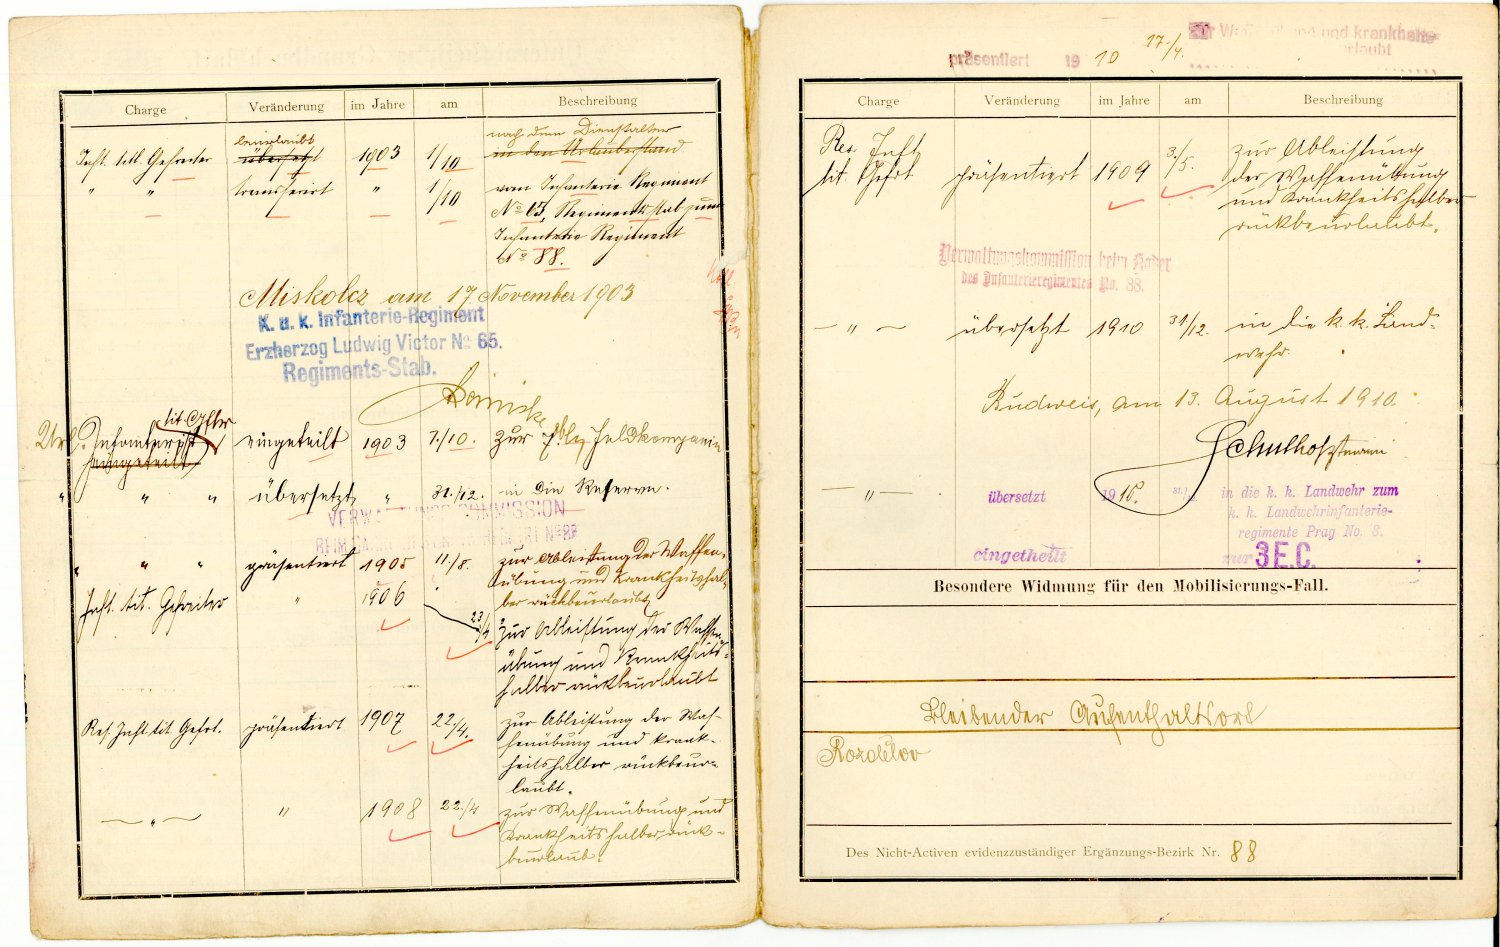 Charge Veränderung im Jahre am Beschreibung
beurlaubt nach dem Dienstalter
Inft. titl. Gefreiter übersetzt 1903 1/10 in den Urlauberstand
" " transferirt " 1/10 vom Infanterie Regiment
No 65, Regimentsstab zum
Infanterie Regiment
No 88.
Miskolcz am 17 November 1903
K. u. k. Infanterie-Regiment
Erzherzog Ludwig Victor No 65.
Regiments-Stab.
Url. Infanterist eingeteilt 1903 7./10. zur Feldkompanie
eingeteilt
" " " übersetzt " 31./12. in die Reserve.
VERWALTUNGS-COMMISSION
No 88
" " " präsentiert 1905 11./8. zur Ableistung der Waffen-
übung und Krankheitshal-
ber rückbeurlaubt
Inft. tit. Gefreiter " 1906
23/4 Zur Ableistung der Waffen-
übung und Krankheits-
halber rückbeurlaubt
Res. Inft. tit. Gefrt. präsentiert 1907 22./4. zur Ableistung der Waf-
fenübung und krank-
heitshalber rückbeur-
laubt.
— " — " 1908 22./4 zur Waffenübung und
Krankheitshalber rück-
beurlaub.
präsentiert 1910 17./4. zur Waffenübung und krankheits-
urlaubt
Charge Veränderung im Jahre am Beschreibung
Res. Inft
tit. Gefrt präsentiert 1909 3./5. zur Ableistung
der Waffenübung
und Krankheitshalber
rückbeurlaubt.
Verwaltungskommission beim Kader
des Infanterieregimentes No. 88.
— " — übersetzt 1910 31/12. in die k. k. Land-
wehr.
Budweis, am 13. August 1910.
— " — übersetzt 1910. 31./12. in die k. k. Landwehr zum
k. k. Landwehrinfanterie-
regimente Prag No. 8.
eingetheilt zur 3 E.C.
Besondere Widmung für den Mobilisierungs-Fall.
Bleibender Aufenthaltsort
Rozdělov
Des Nicht-Activen evidenzzuständiger Ergänzungs-Bezirk Nr. 88